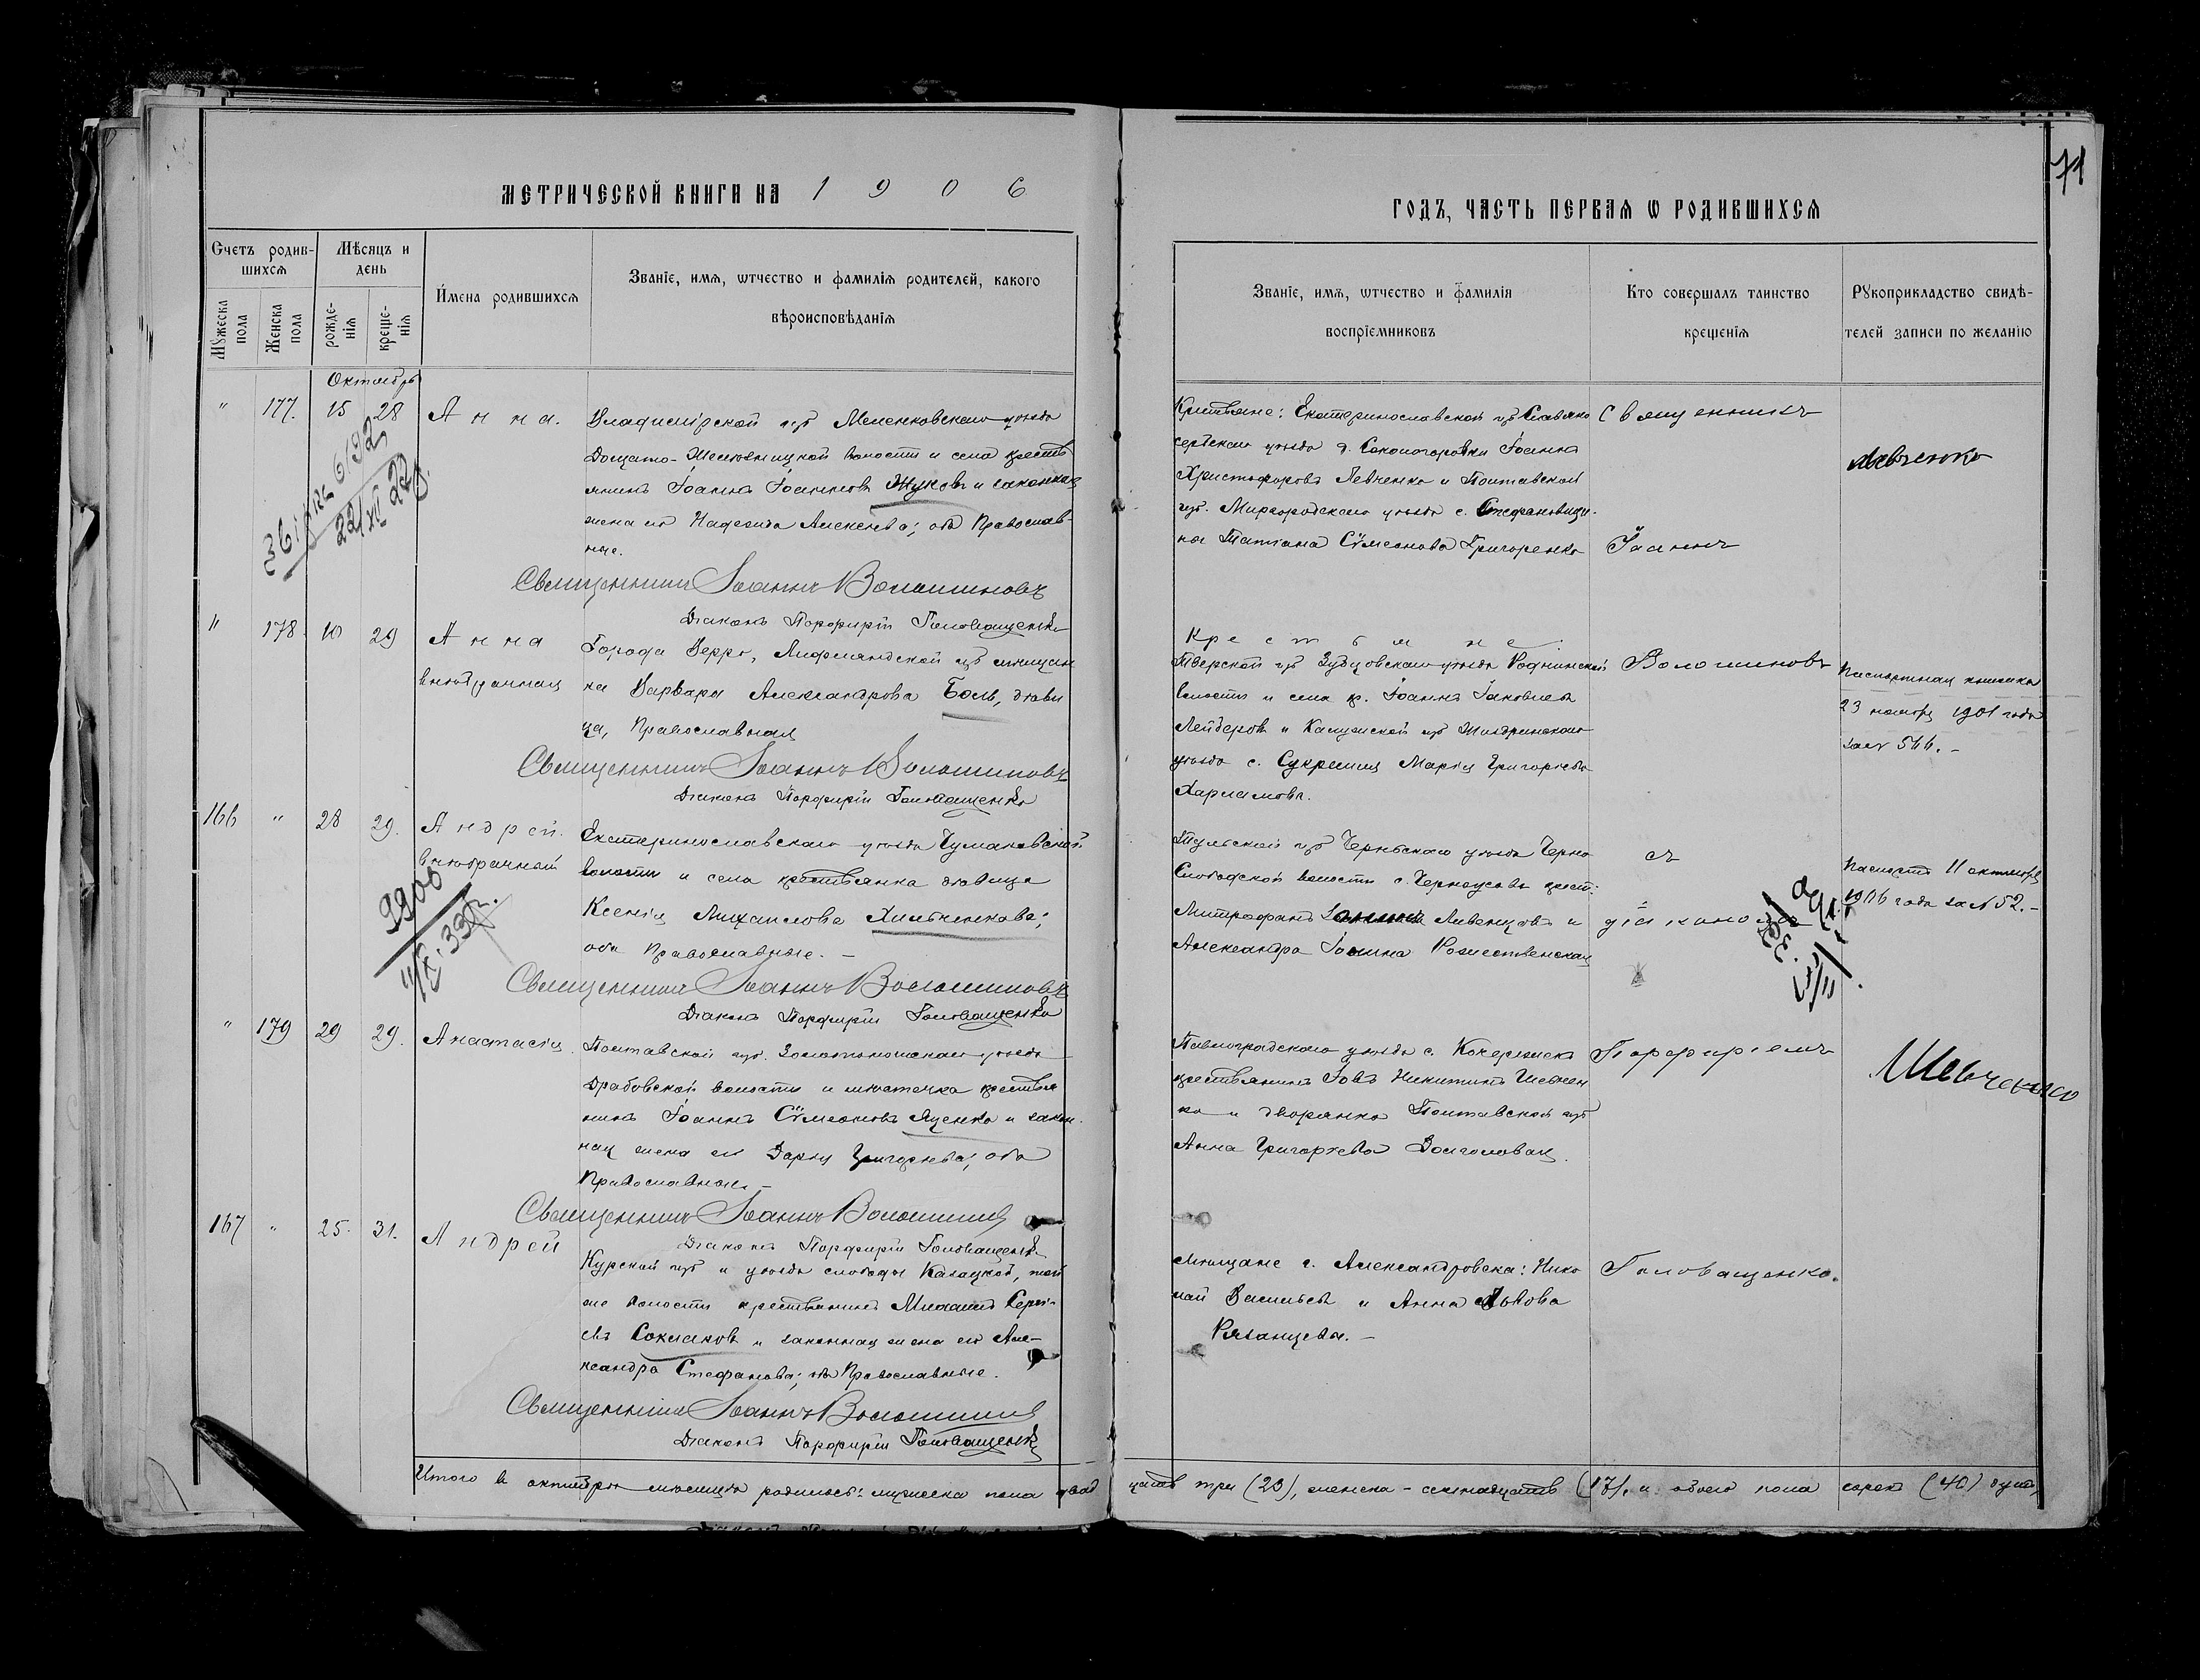 71
МЕТРИЧЕСКОЙ КНИГИ НА 1906
ГОДЪ, ЧАСТЬ ПЕРВАЯ Ѡ РОДИВШИХСЯ
Счетъ родив-
шихся
Мѣсяцъ и
день
Мужеска пола
Женска пола
рожде-
нія
креще-
нія
Имена родившихся
Званіе, имя, ѡтчество и фамилія родителей, какого
вѣроисповѣданія
Званіе, имя, ѡтчество и фамилія
воспріемниковъ
Кто совершалъ таинство
крещенія
Рукоприкладство свидѣ-
телей записи по желанію
Октябрь
" 177. 15 28 Анна.
Владимірской губ Меленковскаго уѣзда
волости и села кресть
янинъ Іоаннъ Іоанновъ Жуковъ и законная
жена его Надежда Алексѣева; оба Православ-
ные.
Священникъ Іоаннъ Волошиновъ
Діаконъ Порфирій Головащенко
Крестьяне: Екатеринославской губ Славяно
сербскаго уѣзда д. Сокологоровки Іоаннъ
Христофоровъ Левченко и Полтавской
губ. Миргородскаго уѣзда с. Стефановщи-
ны Татіана Сѵмеонова Григоренко
Священникъ
Іоаннъ
Левченко
" 178 10 29 Анна
внѣбрачная
Города Верро, Лифляндской губ мѣщан
ка Варвара Александрова Боль, дѣви
ца, Православная
Священникъ Іоаннъ Волошиновъ
Діаконъ Порфирій Головащенко
Крестьяне:
Тверской губ Зубцовскаго уѣзда
волости и села кр. Іоаннъ Іаковлевъ
и Калужской губ Жиздринскаго
уѣзда с. Марія Григорьева
Харламова.
Волошиновъ
Паспортная книжка
23 ноября 1901 года
за № 566. -
166 " 28 29. Андрей.
внѣбрачный
Екатеринославскаго уѣзда Чумаковской
волости и села крестьянка дѣвица
Ксенія Михаилова
оба Православные. -
Священникъ Іоаннъ Волошиновъ
Діаконъ Порфирій Головащенко
Тульской губ Чернскаго уѣзда Черно
Слободской волости с. Черноусова крест:
Митрофанъ Ливенцовъ и
Александра Іоанна Рождественская
съ
діакономъ
Паспортъ 11 октября
1906 года за № 52. -
" 179 29 29. Анастасія.
Полтавской губ. Золотоношскаго уѣзда
Драбовской волости и мѣстечка крестья
нинъ Іоаннъ Сѵмеоновъ Яценко и закон-
ная жена его Дарія Григорьева; оба
Православные. -
Священникъ Іоаннъ Волошинъ
Діаконъ Порфирій Головащенко
Павлоградскаго уѣзда с. Кочережекъ
крестьянинъ Іовъ Никитинъ Шевчен
ко и дворянка Полтавской губ
Анна Григорьева
Порфиріемъ
Шевченко
167 " 25. 31. Андрей
Курской губ и уѣзда слободы Казацкой, той
же волости крестьянинъ Михаилъ Сергі-
евъ Соклаковъ и законная жена его Але-
ксандра Стефанова; оба Православные.
Священникъ Іоаннъ Волошинъ
Діаконъ Порфирій Головащенко
Мѣщане г. Александровска: Нико
лай Васильевъ и Анна Львова
Рязанцевы. -
Головащенко.
Итого въ октябрѣ мѣсяцѣ родилось: мужеска пола двад
цать три (23), женска - семнадцать (17), и обоего пола сорокъ (40) душъ,